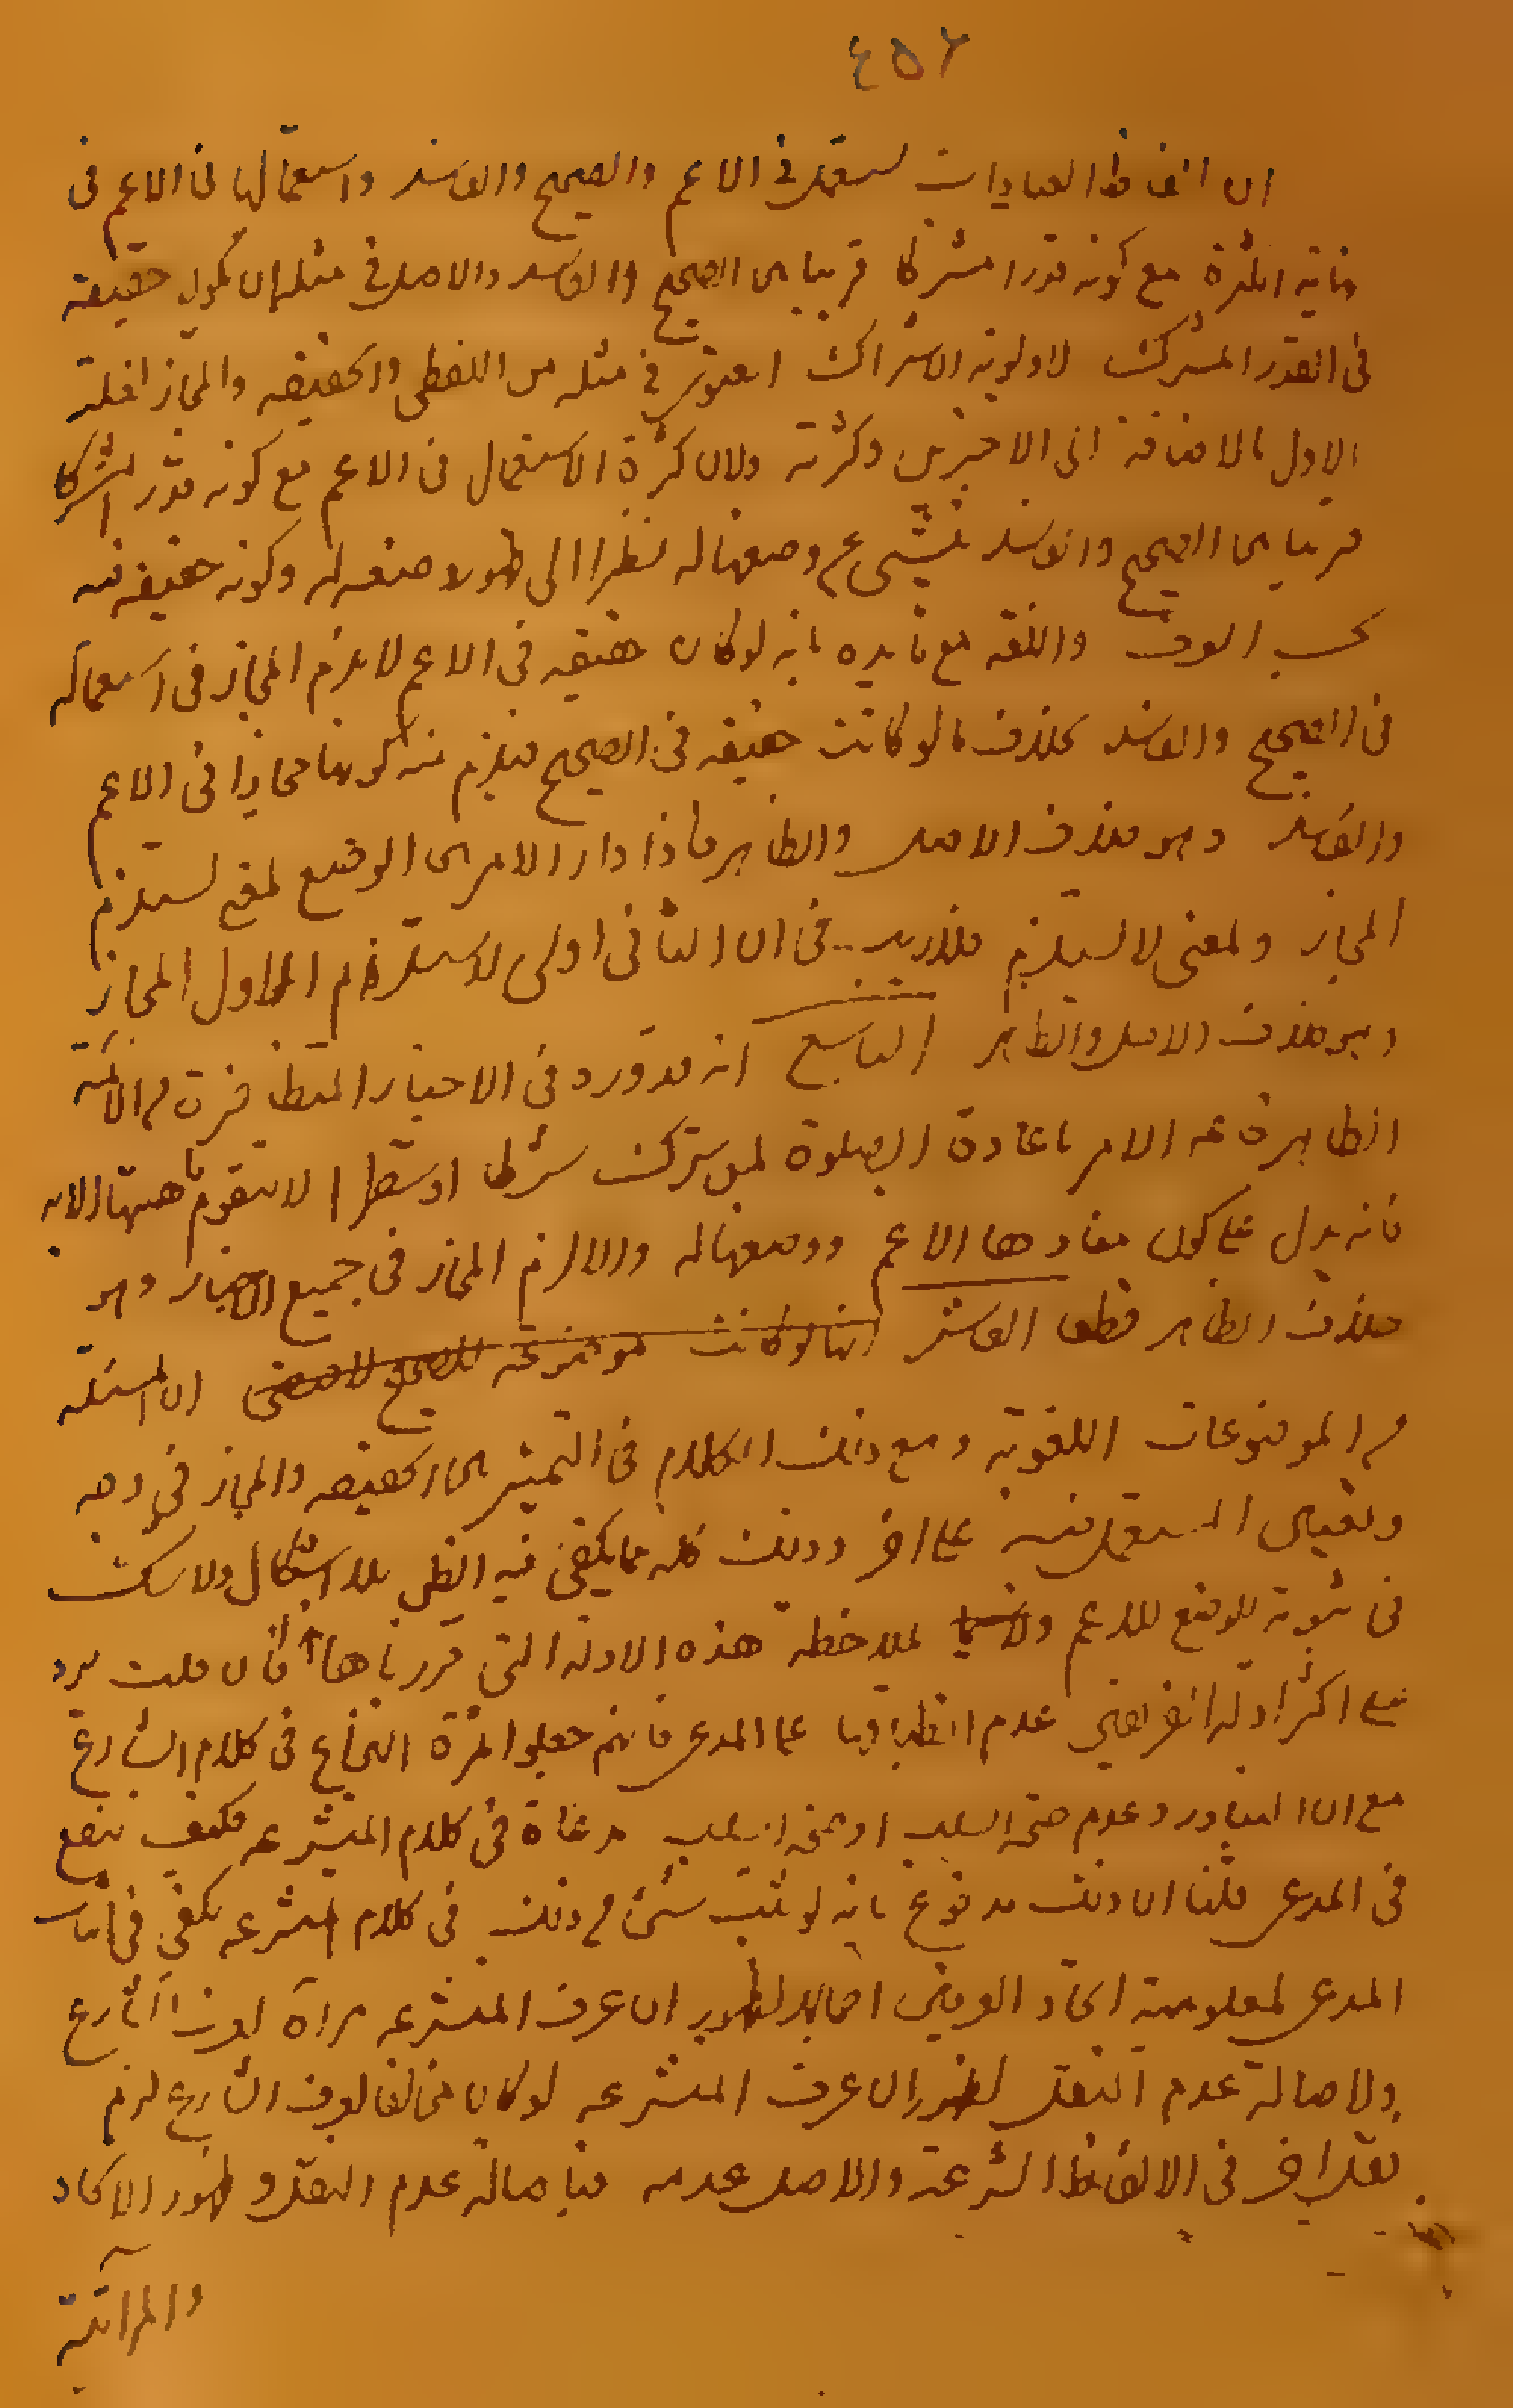 ٤٥٢
ان الفاظ العبادات تستعمل فى الاعم والصحيح والفاسد واستعمالها فى الاعم فى
غاية الكثرة مع كونه قدرا مشتركا قريبا بين الصحيح والفاسد والاصل فى مثله ان يكون حقيقة
فى القدر المشترك لاولوية الاشتراك المعنوى فى مثله من اللفظى والحقيقة والمجاز لغلبة
الاول بالاضافة الى الاخيرين وكثرته ولان كثرة الاستعمال فى الاعم مع كونه قدرا مشتركا
قريبا بين الصحيح والفاسد عن وضعها له نظرا الى ظهور وضعه له وكونه حقيقة فيه
بحسب العرف واللغة مع تايده بانه لو كان حقيقة فى الاعم لا يلزم المجاز فى استعماله
فى الصحيح والفاسد بخلاف ما لو كانت حقيقة فى الصحيح فيلزم منه كونها مجازا فى الاعم
والفاسد وهو خلاف الاصل والظاهر فاذا دار الامر بين الوضع لمعنى يستلزم
المجاز ولمعنى لا يستلزم فلا ريب فى ان الثانى اولى لاستلزام الاول المجاز
وهو خلاف الاصل والظاهر التاسع انه قد ورد فى الاخبار المتظافرة من الائمة
الطاهرة عه الامر باعادة الصلوة لمن ترك شرطا او شطرا لا يتقوم ماهيتها الا به
فانه يدل على كون مفادها الاعم ووضعها له والا لزم المجاز فى جميع الاخبار وهو
خلاف الظاهر قطعا العاشر انها لو كانت موضوعة للصحيح لاقتضى ان المسئلة
من الموضوعات اللغوية ومع ذلك الكلام فى التميز بين الحقيقة والمجاز فى وجه
وتعيين المستعمل فيه على اخر وذلك كله مما يكفى فيه الظن بلا اشكال ولا شك
فى ثبوته للوضع للاعم ولاسيما بملاحظة هذه الادلة التى قررناها فان قلت يرد
على اكثر ادلة الفريقين عدم انطباقها على المدعى فانهم جعلوا ثمرة النزاع فى كلام الشارع
مع ان التبادر وعدم صحة السلب او صحة السلب مدعاة فى كلام المتشرعه فكيف ينفع
فى المدعى قلنا ان ذلك مدفوع بانه لو ثبت شئ من ذلك فى كلام المتشرعه يكفى فى اثبات
المدعى لمعلومية اتحاد العرفين لظهور ان عرف المتشرعه مراة لعرف الشارع
ولاصالة عدم النقل لظهور ان عرف المتشرعه لو كان مخالفا لعرف الشارع لزم
نقل اخر فى الالفاظ الشرعية والاصل عدمه فباصالة عدم النقل وظهور الاتحاد
والمرآتية